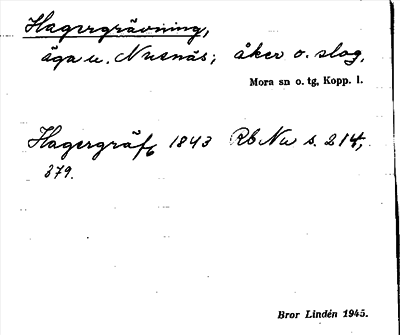 Hagergrävning,
äga u. Nusnäs; åker o. slog,
Mora sn o. tg, Kopp. l.
Hagergräf 1843 Rb Nu s. 214,
379.
Bror Lindén 1945.